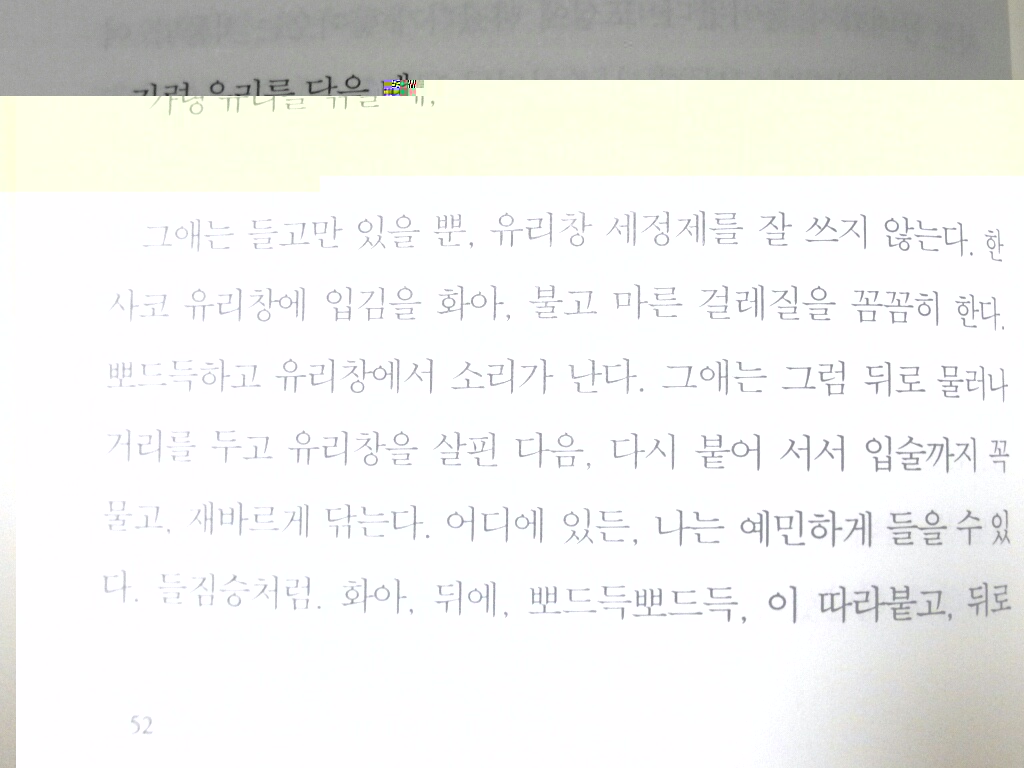 가령 유리를 닦을 때,
그애는 들고만 있을 뿐, 유리창 세정제를 잘 쓰지 않는다. 한
사코 유리창에 입김을 화아, 불고 마른 걸레질을 꼼꼼히 한다.
뽀드득하고 유리창에서 소리가 난다. 그애는 그럼 뒤로 물러나
거리를 두고 유리창을 살핀 다음, 다시 붙어 서서 입술까지 꼭
물고, 재바르게 닦는다. 어디에 있든, 나는 예민하게 들을 수 있
다. 들짐승처럼. 화아, 뒤에, 뽀드득뽀드득, 이 따라붙고, 뒤로
52